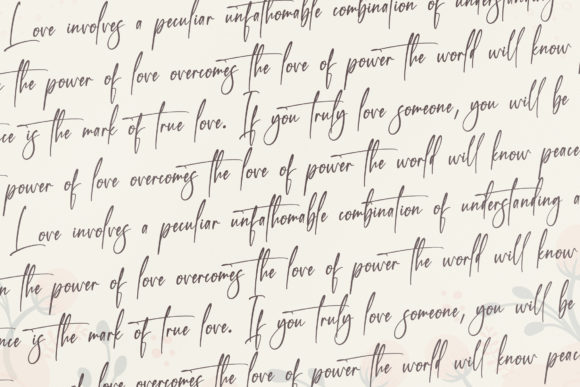 Love involves a peculiar unfathomable combination of understanding
the power of love overcomes the love of power the world will know
is the mark of true love. If you truly love someone, you will be
power of love overcomes the love of power the world will know peace
Love involves a peculiar unfathomable combination of understanding a
the power of love overcomes the love of power the world will know
is the mark of true love. If you truly love someone, you will be
of love overcomes the love of power the world will know peace